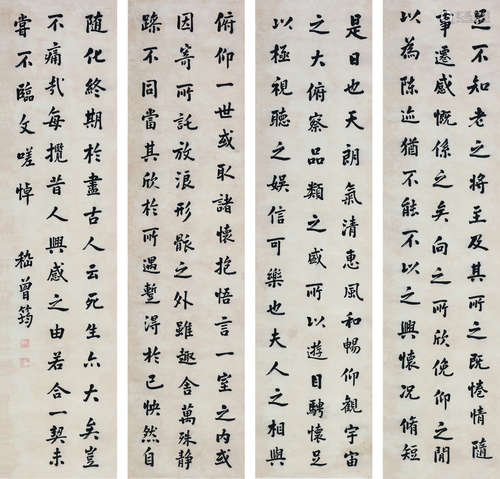 足不知老之將至及其所之既惓情隨
事遷感慨係之矣向之所欣俛仰之間
以為陳迹猶不能不以之興懷況脩短
是日也天朗氣清惠風和暢仰觀宇宙
之大俯察品類之盛所以遊目騁懷足
以極視聽之娛信可樂也夫人之相與
俯仰一世或取諸懷抱悟言一室之內或
因寄所託放浪形骸之外雖趣舍萬殊靜
躁不同當其欣於所遇蹔得於己怏然自
隨化終期於盡古人云死生亦大矣豈
不痛哉每攬昔人興感之由若合一契未
嘗不臨文嗟悼 嵇曾筠